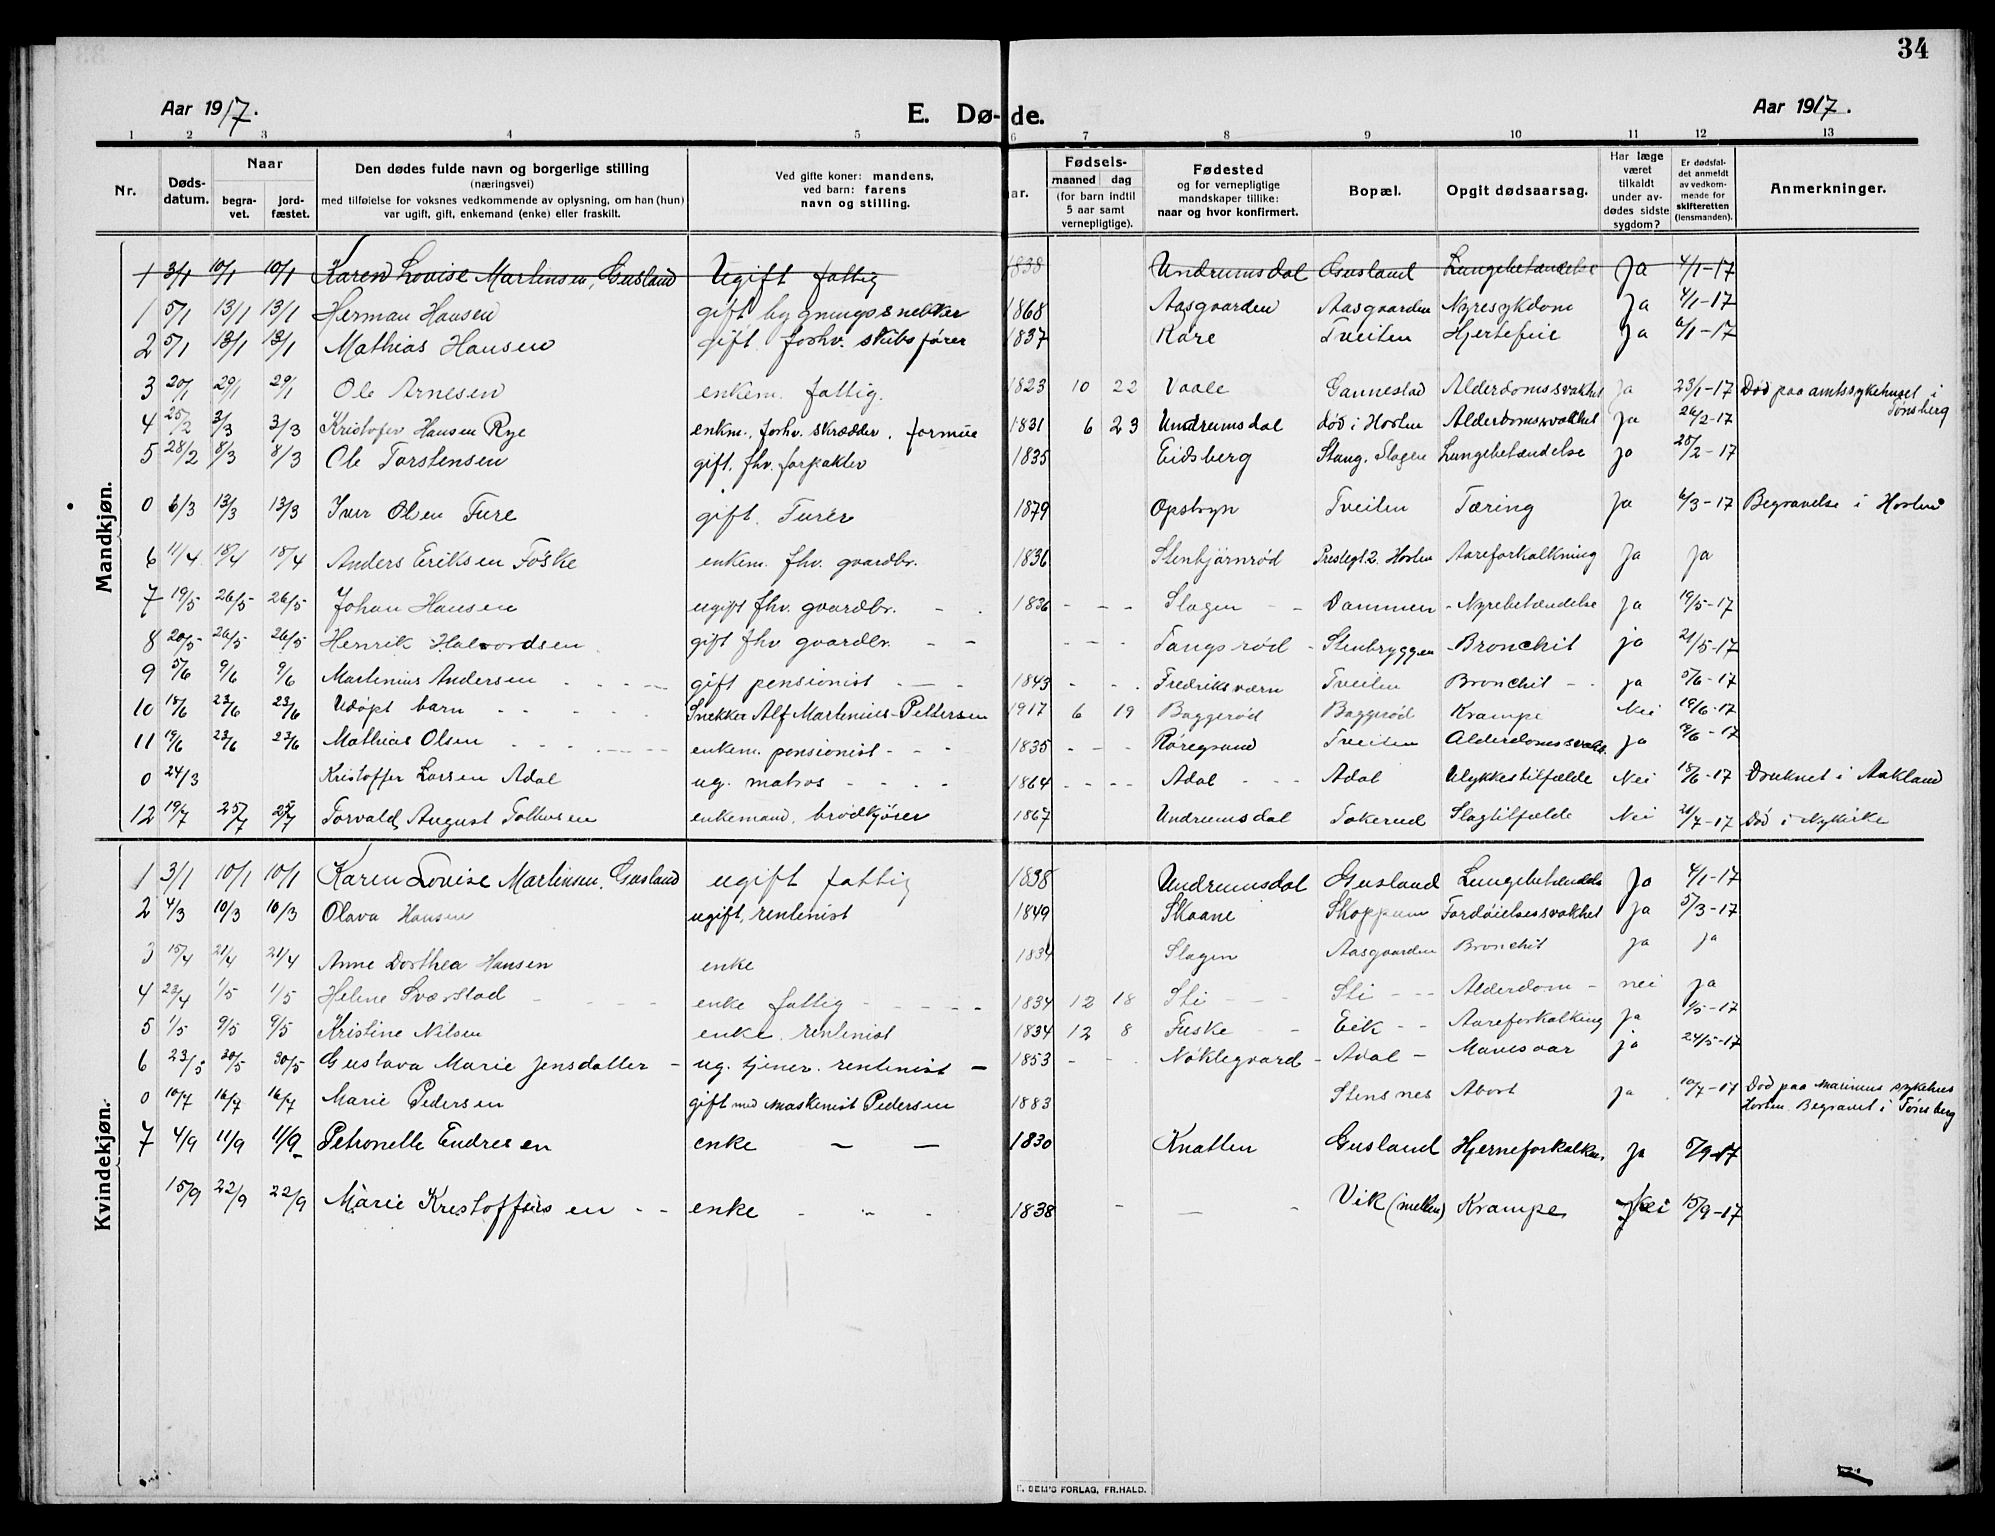 34
Aar 1917.
E. Dø-
de.
Aar 1917.
1 2 3 4 5 6 7 8 9 10 11 12 13
Nr.
Døds-
datum.
Naar
begra-
vet.
jord-
fæstet.
Den dødes fulde navn og borgerlige stilling
(næringsvei)
med tilføielse for voksnes vedkommende av oplysning, om han (hun)
var ugift, gift, enkemand (enke) eller fraskilt.
Ved gifte koner: mandens,
ved barn: farens
navn og stilling.
ar.
Fødsels-
maaned dag
(for barn indtil
5 aar samt
vernepligtige).
Fødested
og for vernepligtige
mandskaper tillike:
naar og hvor konfirmert.
Bopæl.
Opgit dødsaarsag.
Har læge
været
tilkaldt
under av-
dødes sidste
sygdom?
Er dødsfal-
det anmeldt
av vedkom-
mende for
skifteretten
(lensmanden).
Anmerkninger.
Mandkjøn.
1 3/1 10/1 10/1 Karen Lovise Martinsen, Gusland Ugift fattig 1838 Undrumsdal Gusland Lungebetændelse Ja 4/1-17
1 5/1 13/1 13/1 Herman Hansen gift bygningssnekker 1868 Aasgaarden Aasgaarden Nyresykdom Ja 4/1-17
2 5/1 13/1 13/1 Mathias Hansen gift. forhv. skibsfører 1837 Kare Tveiten Hjertefeil Ja 6/1-17
3 20/1 29/1 29/1 Ole Arnesen enkem. fattig. 1823 10 22 Vaale Gannestad Alderdomssvakhet Ja 23/1-17 Død paa amtssykehuset i
Tønsberg
4 25/2 3/3 3/3 Kristofer Hansen Rye enkm., forhv. skrædder. formue 1831 6 23 Undrumsdal død i Horten Alderdomssvakhet Ja 26/2-17
5 28/2 8/3 8/3 Ole Torstensen gift. fhv. forpakter 1835 Eidsberg Stang. Slagen Lungebetændelse Ja 28/2-17
0 6/3 13/3 13/3 Iver Olsen Ture gift. Turer 1879 Opstryn Tveiten Tæring Ja 6/3-17 Begravelse i Horten
6 11/4 18/4 18/4 Anders Eriksen Foske enkem. fhv. gaardbr. 1836 Stenbjørnrød Prestegt. 2. Horten Aareforkalkning Ja Ja
7 19/5 26/5 26/5 Johan Hansen ugift fhv. gaardbr. - . 1836 - - - Slagen - - Dammen - Nyrebetændelse Ja 19/5-17
8 20/5 26/5 26/5 Henrik Halvordsen gift fhv gaardbr. - - - - - Tangsrød - Stenbryggen - Bronchit ja 21/5-17
9 5/6 9/6 9/6 Martinius Andersen - - - gift pensionist - - - 1843 - - . Fredriksværn Tveiten Bronchit - - ja 5/6-17
10 18/6 23/6 23/6 Udøpt barn - - - Snekker Alf Martinius Pettersen 1917 6 19 Baggerød Baggerød Krampe Nei 19/6-17
11 19/6 23/6 23/6 Mathias Olsen - - - enkem. pensionist - - - 1835 - - - Røregrund Tveiten Alderdomssvakh. ja 9/6-17
0 24/3 Kristoffer Larsen Adal ug. matros - - - 1864 - - - - Adal - - Adal Ulykkestilfælde Nei 18/6-17 Druknet i Aakland
12 19/7 25/7 25/7 Torvald August Tollersen enkemand. brødkjører 1867 Undrumsdal Tokerud Slagtilfælde Nei 21/7-17 Død i Nykirke
Kvindekjøn.
1 3/1 10/1 10/1 Karen Lovise Martinsen. Gusland ugift fattig 1838 Undrumsdal Gusland Lungebetændelse Ja 4/1-17
2 4/3 10/3 10/3 Olava Hansen ugift, rentenist 1849 Skaane Skoppum Fordøielsessvakhet Ja 5/3-17
3 15/4 21/4 21/4 Anne Dorthea Hansen enke 1834 Slagen Aasgaarden Bronchit ja ja
4 23/4 1/5 1/5 Helene Sværstad - - - enke fattig - - - - - 1834 12 18 Sti - - - Sti - - - Alderdom - nei ja
5 1/5 9/5 9/5 Kristine Nilsen enke. rentenist 1834 12 8 Fuske - - Eik - - Aareforkalking ja 1/5-17
6 23/5 30/5 30/5 Gustava Marie Jensdatter - ug. tjener. rentenist - 1853 - - . Nøklegaard - Adal - Mavesaar ja 24/5-17
0 10/7 16/7 16/7 Marie Pedersen gift med maskinist Pedersen 1883 Stensnes Abort ja 10/7-17 Død paa Marinens sykehus
Horten. Begravet i Tønsberg
7 4/9 11/9 11/9 Petronelle Endresen enke - - 1830 Knatten Gusland Hjerneforkalkn. Ja 5/9-17
15/9 22/9 22/9 Marie Kristoffersen - - enke - - - 1838 - - - Vik (mellem) Krampe Nei 15/9-17
SEM'S FORLAG, FR.HALD.